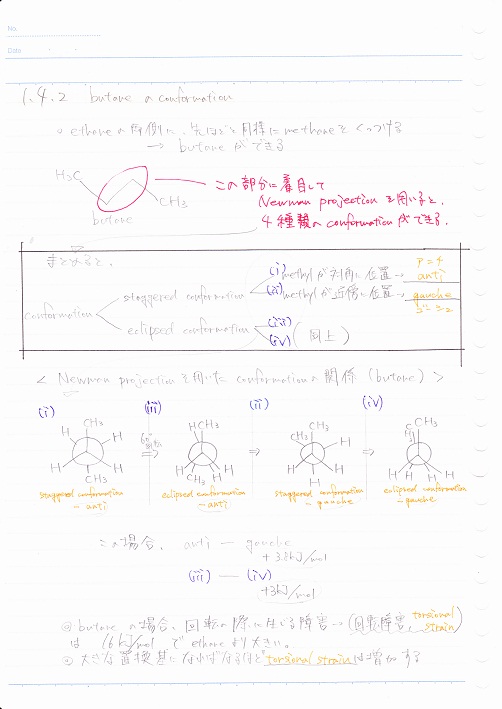 No.
Date
1.4.2 butane の conformation
◎ ethane の両側に、先ほどと同様に methane をくっつける
→ butane ができる
H₃C
CH₃
butane
この部分に着目して
Newman projection を用いると、
4種類の conformation ができる.
まとめると、
conformation
staggered conformation
(i) methyl が対角に位置 → anti
アンチ
(ii) methyl が近傍に位置 → gauche
ゴーシュ
eclipsed conformation
(iii)
(iv) (同上)
< Newman projection を用いた conformation の関係 (butane) >
(i)
(iii)
(ii)
(iv)
CH₃
H
H
H
H
CH₃
60°
回転
⇒
HCH₃
H
H
CH₃
H
⇒
CH₃
CH₃
H
H
H
H
⇒
CH₃
H
H
H
H
staggered conformation
- anti
eclipsed conformation
- anti
staggered conformation
- gauche
eclipsed conformation
- gauche
この場合、 anti — gauche
+3.8kJ/mol
(iii) — (iv)
+3kJ/mol
◎ butane の場合、回転の際に生じる障害 → (回転障害, torsional strain)
は 16kJ/mol で ethane より大きい。
◎ 大きな置換基になればなるほど torsional strain は増加する